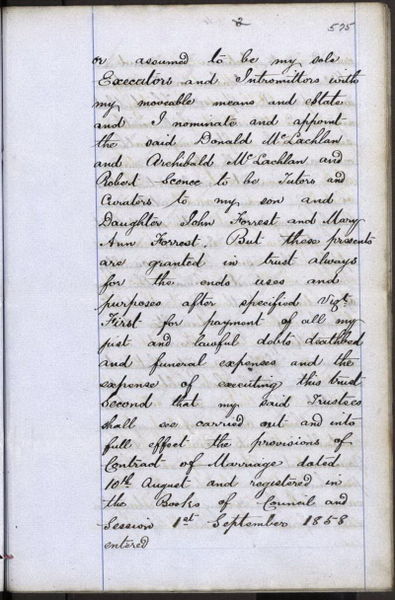 2 575
or assumed to be my sole
Executors and Intromittors with
my moveable means and Estate
and I nominate and appoint
the said Donald McLachlan
and Archibald McLachlan and
Robert Sconce to be Tutors and
Curators to my son and
Daughter John Forrest and Mary
Ann Forrest. But these presents
are granted in trust always
for the ends uses and
purposes after specified Vizt
First for payment of all my
just and lawful debts deathbed
and funeral expenses and the
expense of executing this trust
Second that my said Trustees
shall see carried out and into
full effect the provisions of
Contract of Marriage dated
10th August and registered in
the Books of Council and
Session 1st September 1858
entered